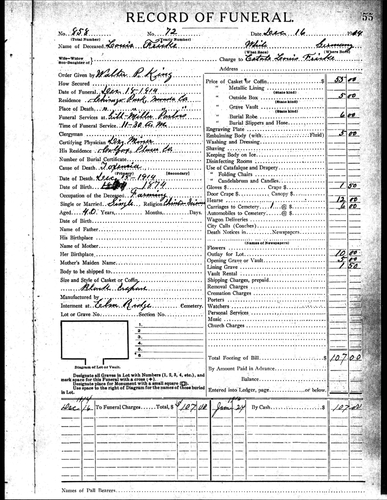 RECORD OF FUNERAL. 55
No. 858 No. 72 Dec 16 1914
(Total Number) (Yearly Number)
Name of Deceased Louis Frinke White Germany
(What Race) (Where Born)
Charge to Estate Louis Frinke
Address
Order Given by Walter P. King
How Secured
Date of Funeral Dec. 18-1914
Residence
Place of Death
Funeral Services at Parlors
Time of Funeral Service 11-30 A.M.
Clergyman
Certifying Physician Miner
His Residence
Number of Burial Certificate
Cause of Death
Date of Death Dec 1914
Date of Birth 1874
Occupation of the Deceased Farming
Single or Married Single Religion
Aged 40 Years, Months, Days
Date of Birth
Name of Father
His Birthplace
Name of Mother
Her Birthplace
Mother's Maiden Name
Body to be shipped to
Size and Style of Casket or Coffin
Manufactured by
Interment at Elm Ridge Cemetery.
Lot or Grave No. Section No.
1
2
3
4
5
6
Diagram of Lot or Vault.
Designate all Graves in Lot with Numbers (1, 2, 3, 4, etc.), and mark space for this Funeral with a cross (+).
Designate place for Monument with a small square
Use space to the right of Diagram for the names of those buried in Lot.
Price of Casket or Coffin 55 00
" Metallic Lining
(State kind)
" Outside Box 5 00
(State kind)
" Grave Vault
(State kind)
" Burial Robe 6 00
(State kind)
" Burial Slippers and Hose
Engraving Plate
Embalming Body (with Fluid) 5 00
Washing and Dressing
Shaving
Keeping Body on Ice
Disinfecting Rooms
Use of Catafalque and Drapery
" Folding Chairs
" Candelabrum and Candles
Gloves $ Crape $ 1 50
Door Crape $
Hearse 12 00
Carriages to Cemetery 1 @ $ 6 00
Automobiles to Cemetery @ $
Wagon Deliveries
City Calls (Coaches)
Death Notices in Newspapers
(Names of Newspapers)
Flowers
Outlay for Lot 10 00
Opening Grave or Vault 5 00
Lining Grave 1 50
Vault Rental
Shipping Charges, prepaid
Removal Charges
Cremation Charges
Porters
Watchers
Personal Services
Music
Church Charges
Total Footing of Bill 107 00
By Amount Paid in Advance
Balance
Entered into Ledger, page or below
1914
Dec 16 To Funeral Charges $ 107 00 Jan 27 By Cash 107 00
Names of Pall Bearers